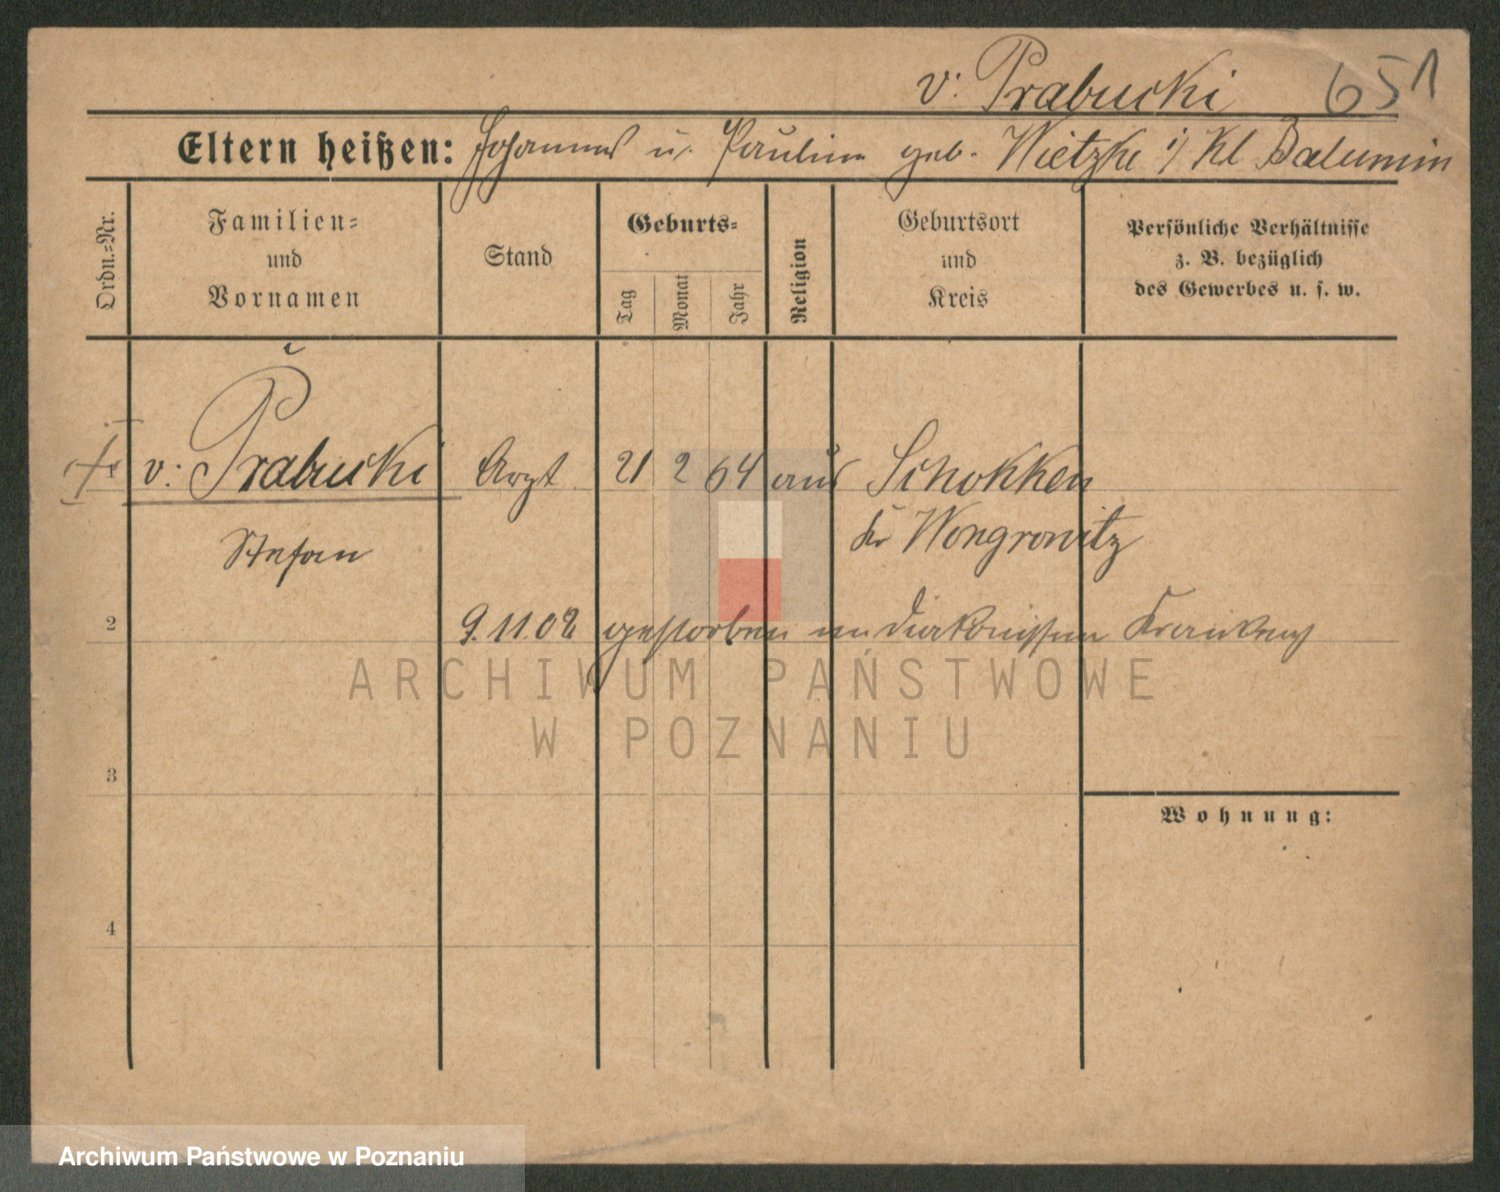 v. Prabucki 651
Eltern heißen: Johannes u. Pauline geb. Wietzke i/ Kl
Ordn.-Nr.
Familien-
und
Vornamen
Stand
Geburts-
Tag
Monat
Jahr
Religion
Geburtsort
und
Kreis
Persönliche Verhältnisse
z. B. bezüglich
des Gewerbes u. s. w.
v. Prabucki Arzt 21 2 64 aus Schokken
Stefan Kr Wongrowitz
2 9.11.02 gestorben im Diakonissen
ARCHIWUM PAŃSTWOWE
W POZNANIU
3
Wohnung:
4
Archiwum Państwowe w Poznaniu